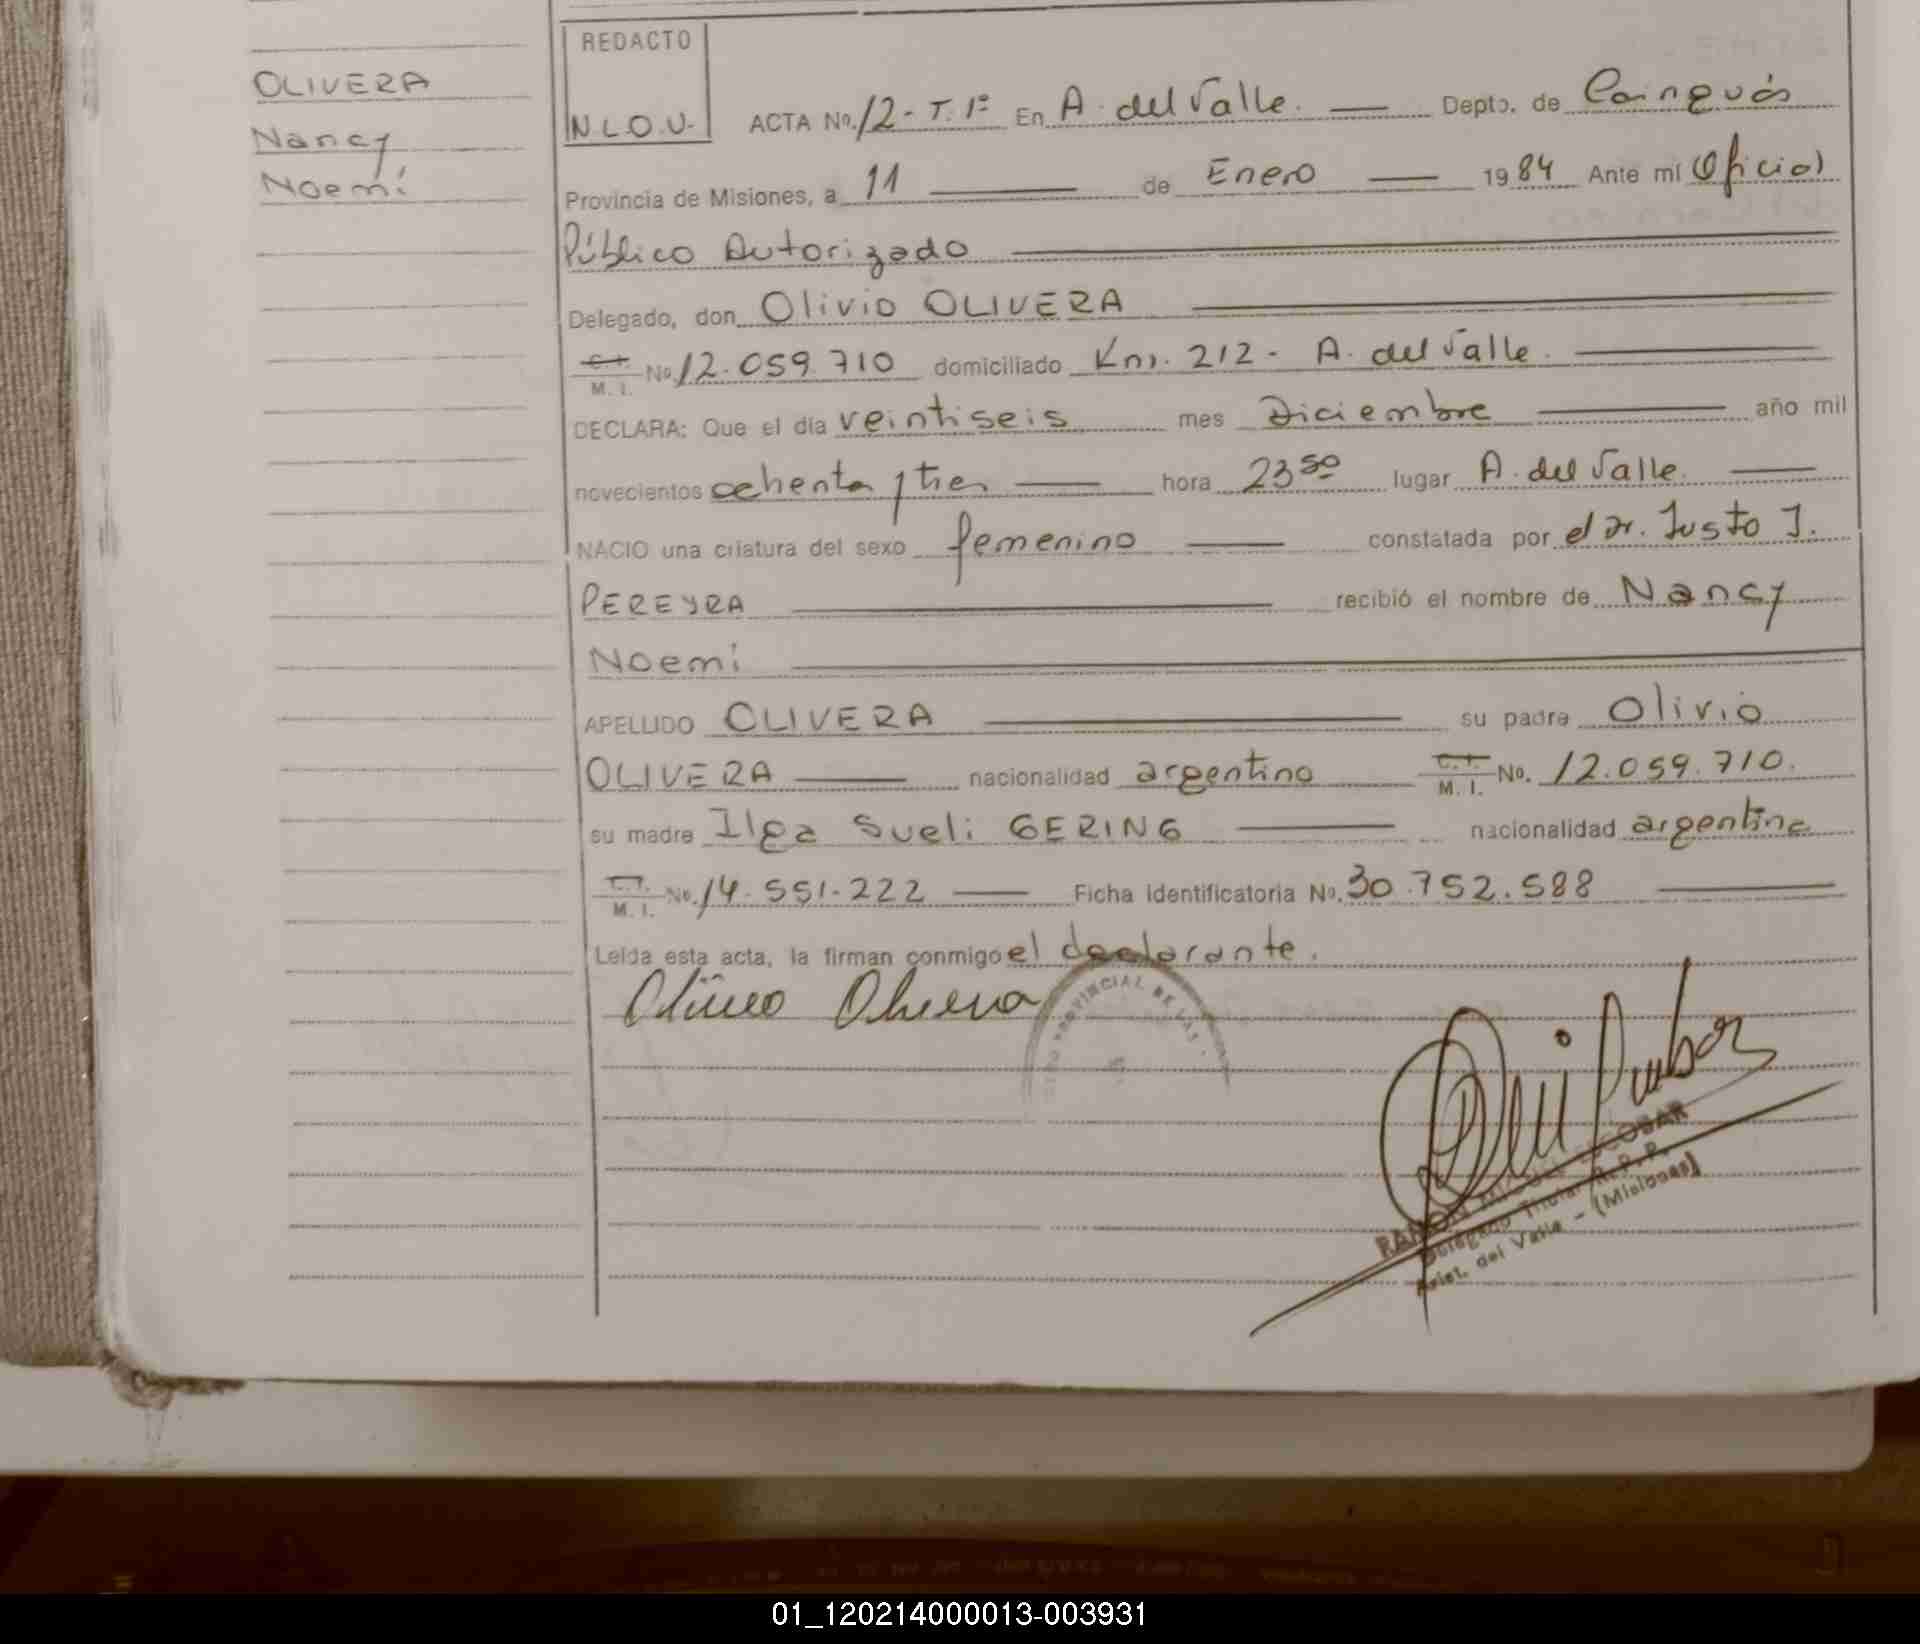 OLIVERA
Nancy
Noemí
REDACTO
N.L.O.V.
ACTA No. 12 - T. 1º En A. del Valle. Depto. de Cainguás
Provincia de Misiones, a 11 de Enero 1984 Ante mí Oficial
Público Autorizado
Delegado, don Olivio OLIVERA
C.I. M.I. No. 12.059.710 domiciliado Km. 212 - A. del Valle.
DECLARA: Que el día veintiseis mes Diciembre año mil
novecientos ochenta y tres hora 23 50 lugar A. del Valle.
NACIO una criatura del sexo femenino constatada por el Dr. Justo J.
PEREYRA recibió el nombre de Nancy
Noemí
APELLIDO OLIVERA su padre Olivio
OLIVERA nacionalidad argentino C.I. M.I. No. 12.059.710.
su madre Ilga Sueli GERING nacionalidad argentina
C.I. M.I. No. 14.551.222 Ficha Identificatoria No. 30.752.588
Leída esta acta, la firman conmigo el declarante.
Olivio Olivera
PROVINCIAL DE LAS
RAMON MIGUEL ESCOBAR
Delegado Titular R.P.P.
Arist. del Valle - (Misiones)
01_120214000013-003931